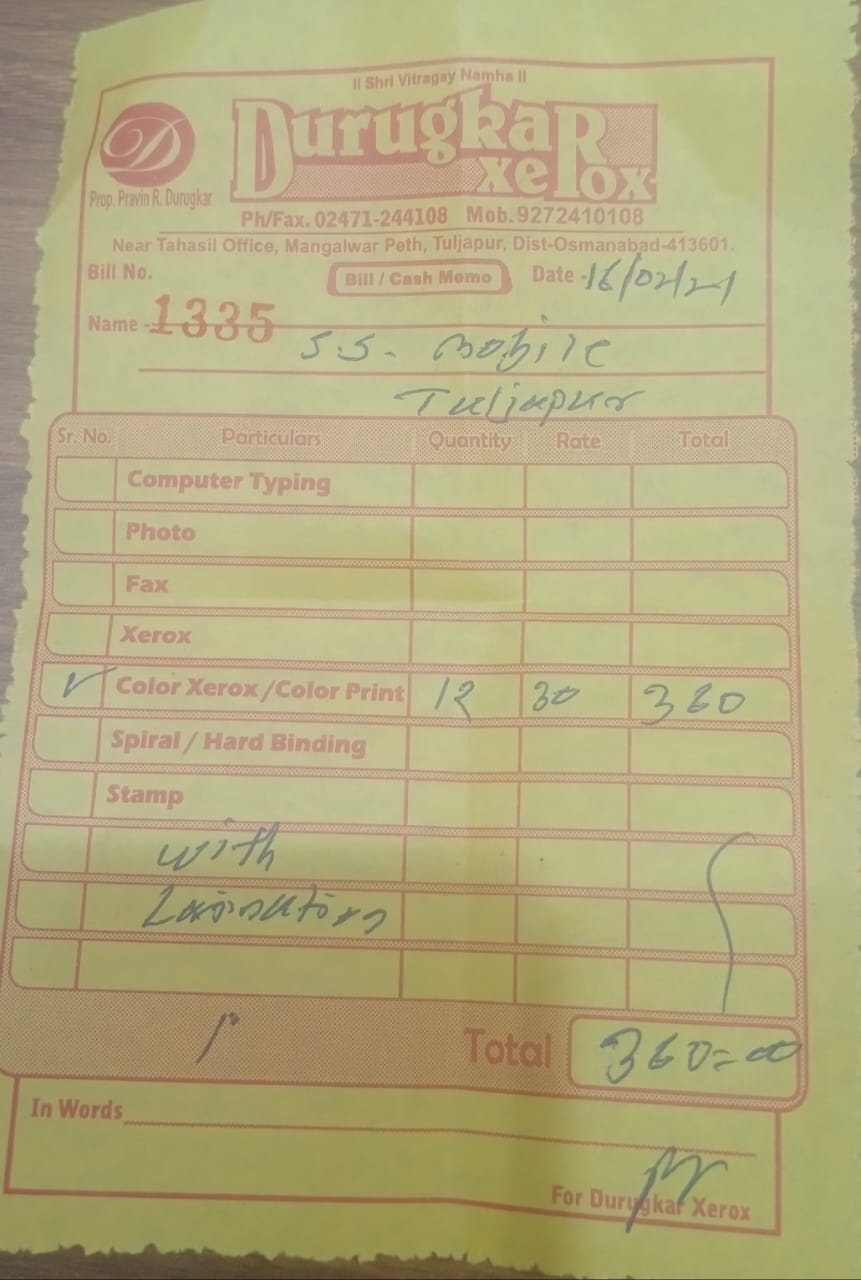 || Shri Vitragay Namha ||
D
Durugkar
xeRox
Prop. Pravin R. Durugkar
Ph/Fax. 02471-244108 Mob.9272410108
Near Tahasil Office, Mangalwar Peth, Tuljapur, Dist-Osmanabad-413601.
Bill No. Bill / Cash Memo Date - 16/02/21
Name - 1335
S.S. Mobile
Tuljapur
Sr. No. Particulars Quantity Rate Total
Computer Typing
Photo
Fax
Xerox
✓ Color Xerox/Color Print 12 30 360
Spiral / Hard Binding
Stamp
with
Lamination
Total 360=00
In Words
For Durugkar Xerox